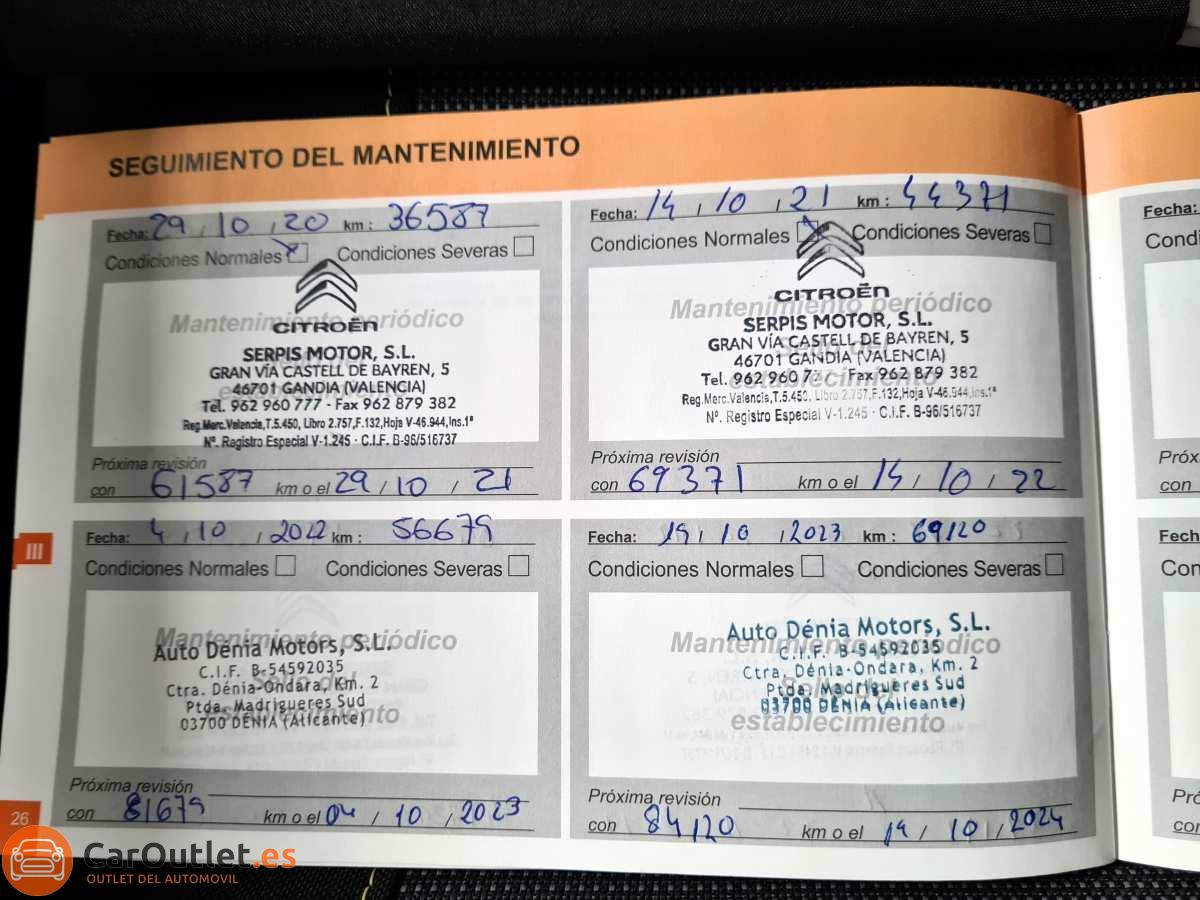 SEGUIMIENTO DEL MANTENIMIENTO
Fecha: 29 / 10 / 20 km : 36587
Condiciones Normales Condiciones Severas
Mantenimiento periódico
CITROËN
SERPIS MOTOR, S.L.
GRAN VÍA CASTELL DE BAYREN, 5
46701 GANDIA (VALENCIA)
Tel. 962 960 777 - Fax 962 879 382
Reg.Merc.Valencia,T.5.450, Libro 2.757,F.132,Hoja V-46.944,Ins.1ª
Nº. Registro Especial V-1.245 · C.I.F. B-96/516737
Próxima revisión
con 61587 km o el 29 / 10 / 21
Fecha: 14 / 10 / 21 km : 44371
Condiciones Normales Condiciones Severas
Mantenimiento periódico
CITROËN
SERPIS MOTOR, S.L.
GRAN VÍA CASTELL DE BAYREN, 5
46701 GANDIA (VALENCIA)
establecimiento
Tel. 962 960 77 - Fax 962 879 382
Reg.Merc.Valencia,T.5.450, Libro 2.757,F.132,Hoja V-46.944,Ins.1ª
Nº. Registro Especial V-1.245 · C.I.F. B-96/516737
Próxima revisión
con 69371 km o el 14 / 10 / 22
III
Fecha: 4 / 10 / 2022 km : 56679
Condiciones Normales Condiciones Severas
Mantenimiento periódico
Auto Dénia Motors, S.L.
C.I.F. B-54592035
Sello del
Ctra. Dénia-Ondara, Km. 2
Ptda. Madrigueres Sud
establecimiento
03700 DÉNIA (Alicante)
Próxima revisión
con 81679 km o el 04 / 10 / 2023
Fecha: 19 / 10 / 2023 km : 69120
Condiciones Normales Condiciones Severas
Auto Dénia Motors, S.L.
Mantenimiento periódico
C.I.F. B-54592035
Ctra. Dénia-Ondara, Km. 2
Sello del
Ptda. Madrigueres Sud
03700 DÉNIA (Alicante)
establecimiento
Próxima revisión
con 84120 km o el 19 / 10 / 2024
26
Fecha:
Fech
con
CarOutlet.es
OUTLET DEL AUTOMOVIL